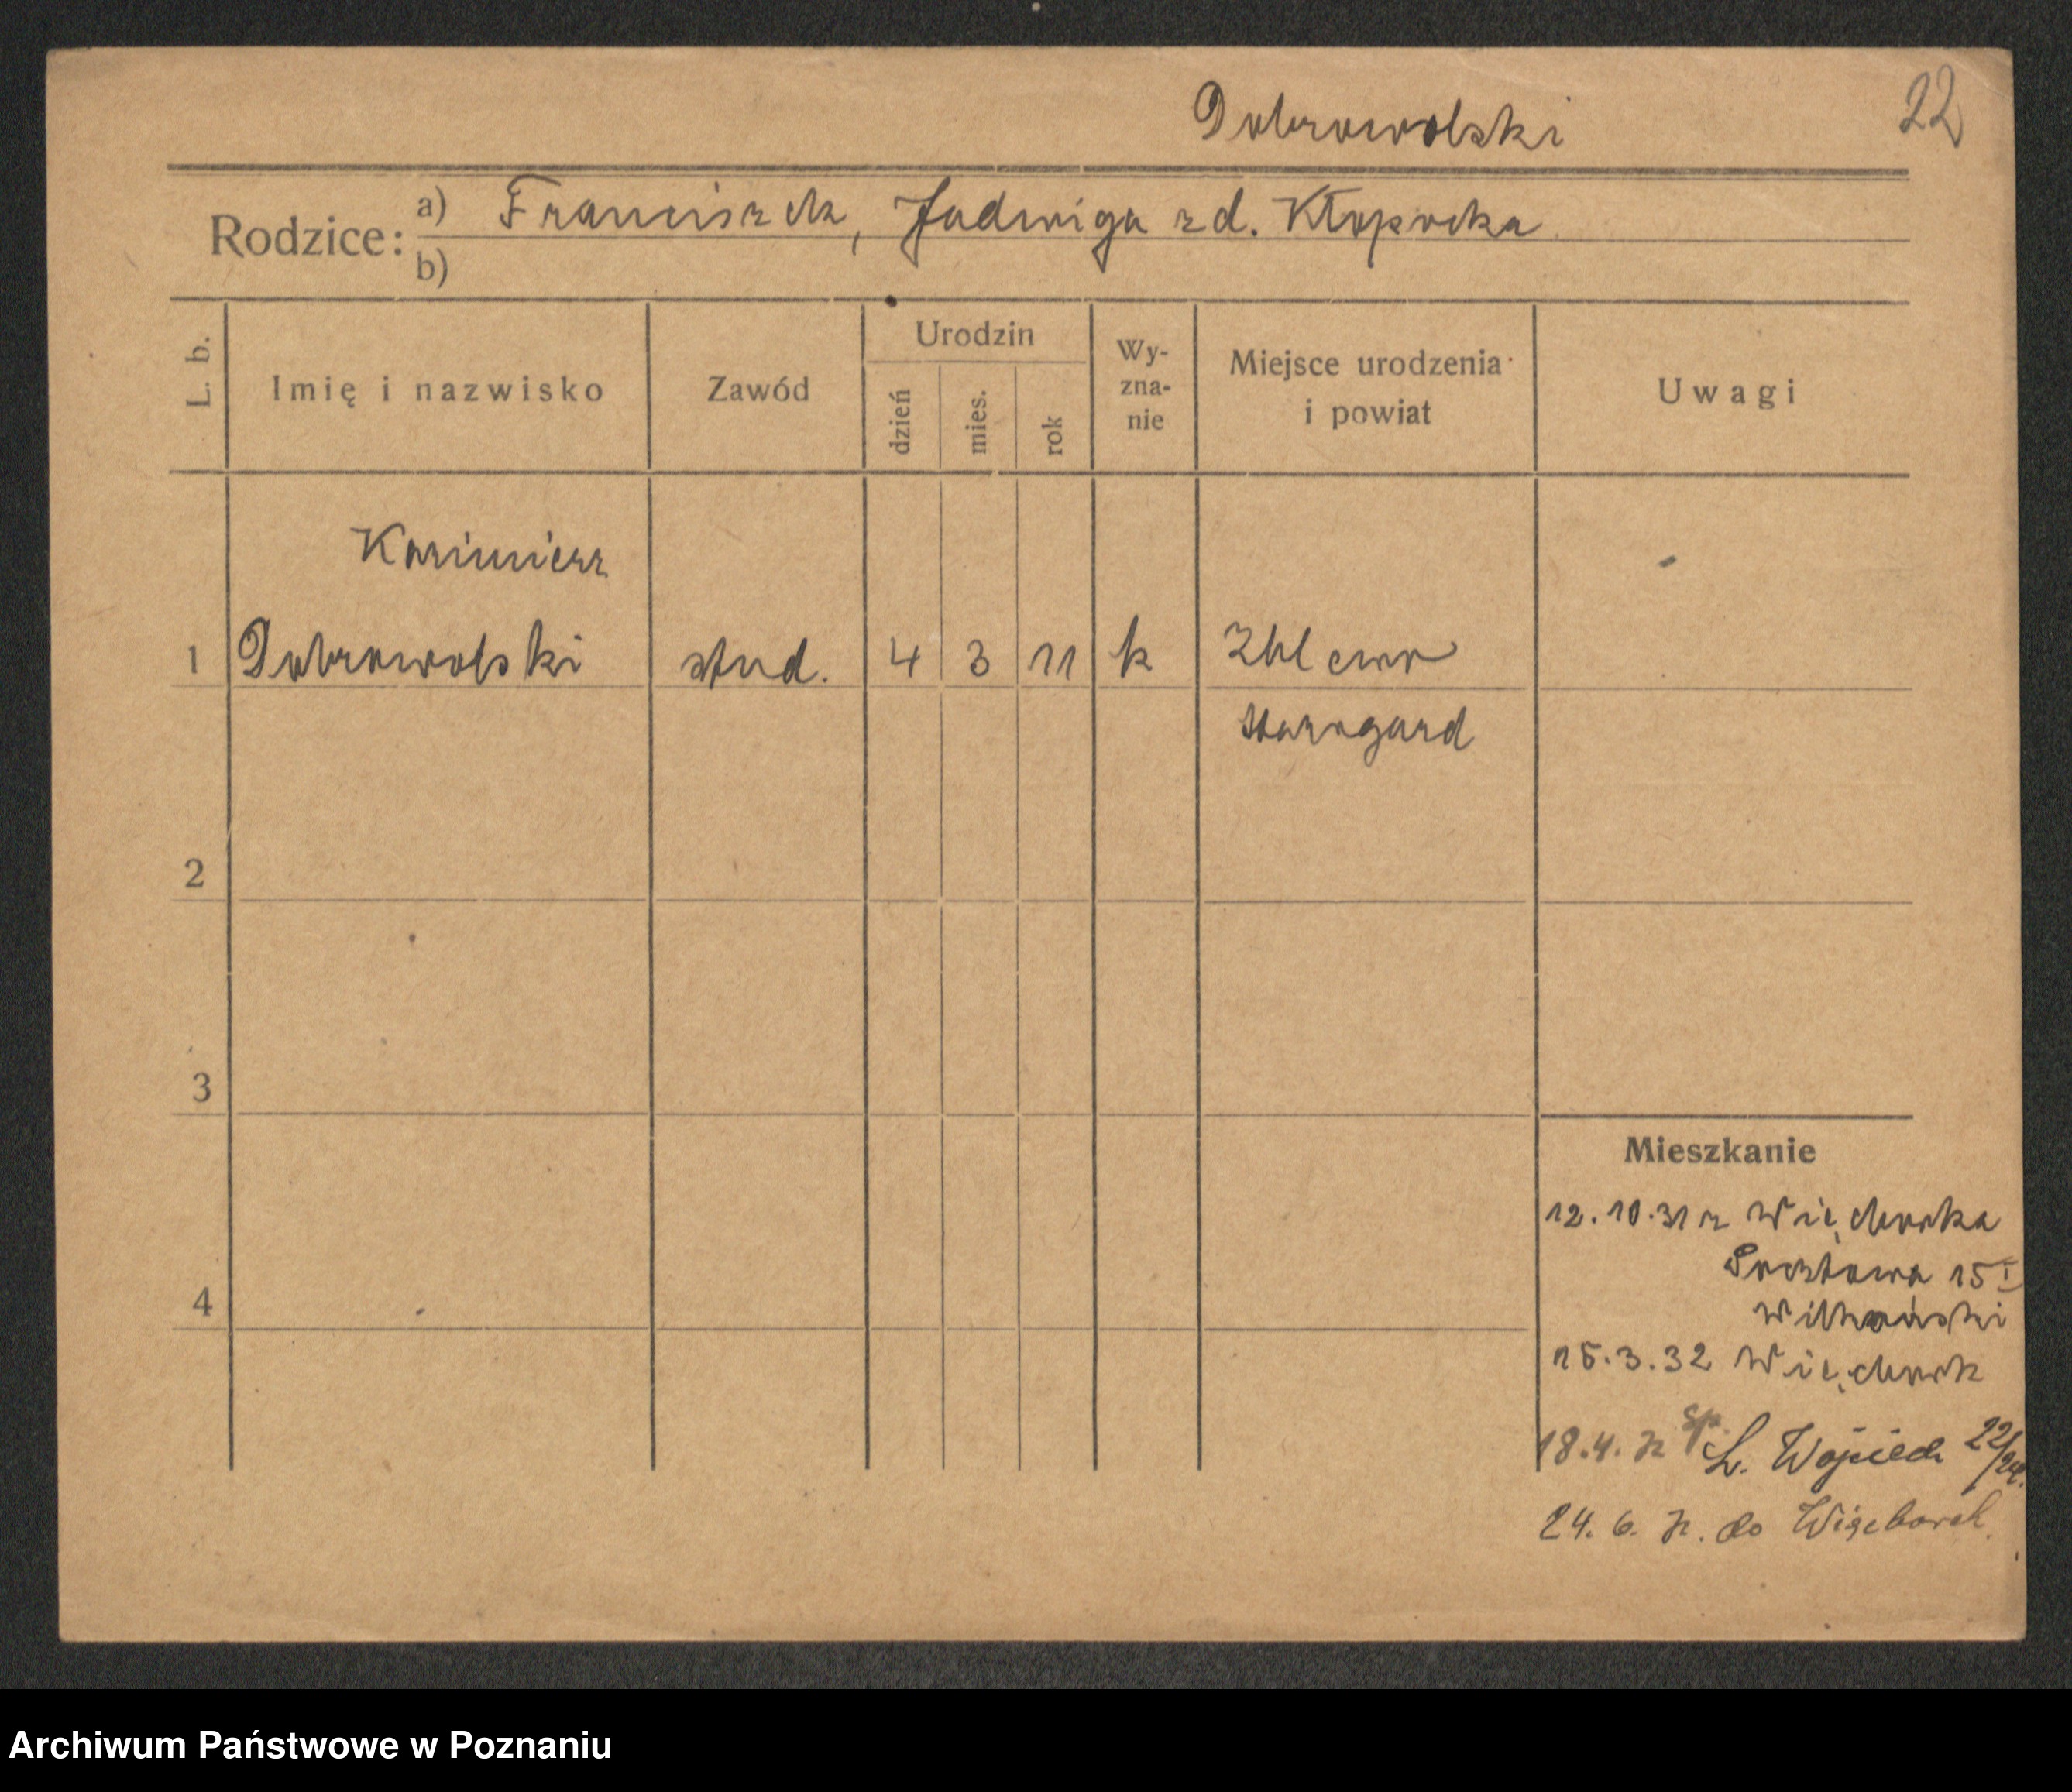 Dobrowolski
22
Rodzice: a) Franciszek, Jadwiga zd. Kłopocka
b)
L. b.
Imię i nazwisko
Zawód
Urodzin
dzień
mies.
rok
Wy-
zna-
nie
Miejsce urodzenia
i powiat
Uwagi
Kazimierz
1 Dobrowolski stud. 4 3 11 k
Starogard
2
3
Mieszkanie
12.10.31 z Więcborka
Pocztowa 15 I
4
15.3.32 Więcbork
18.4. 32 Wojciech 22/24.
24. 6. 32. do Więcbork.
Archiwum Państwowe w Poznaniu